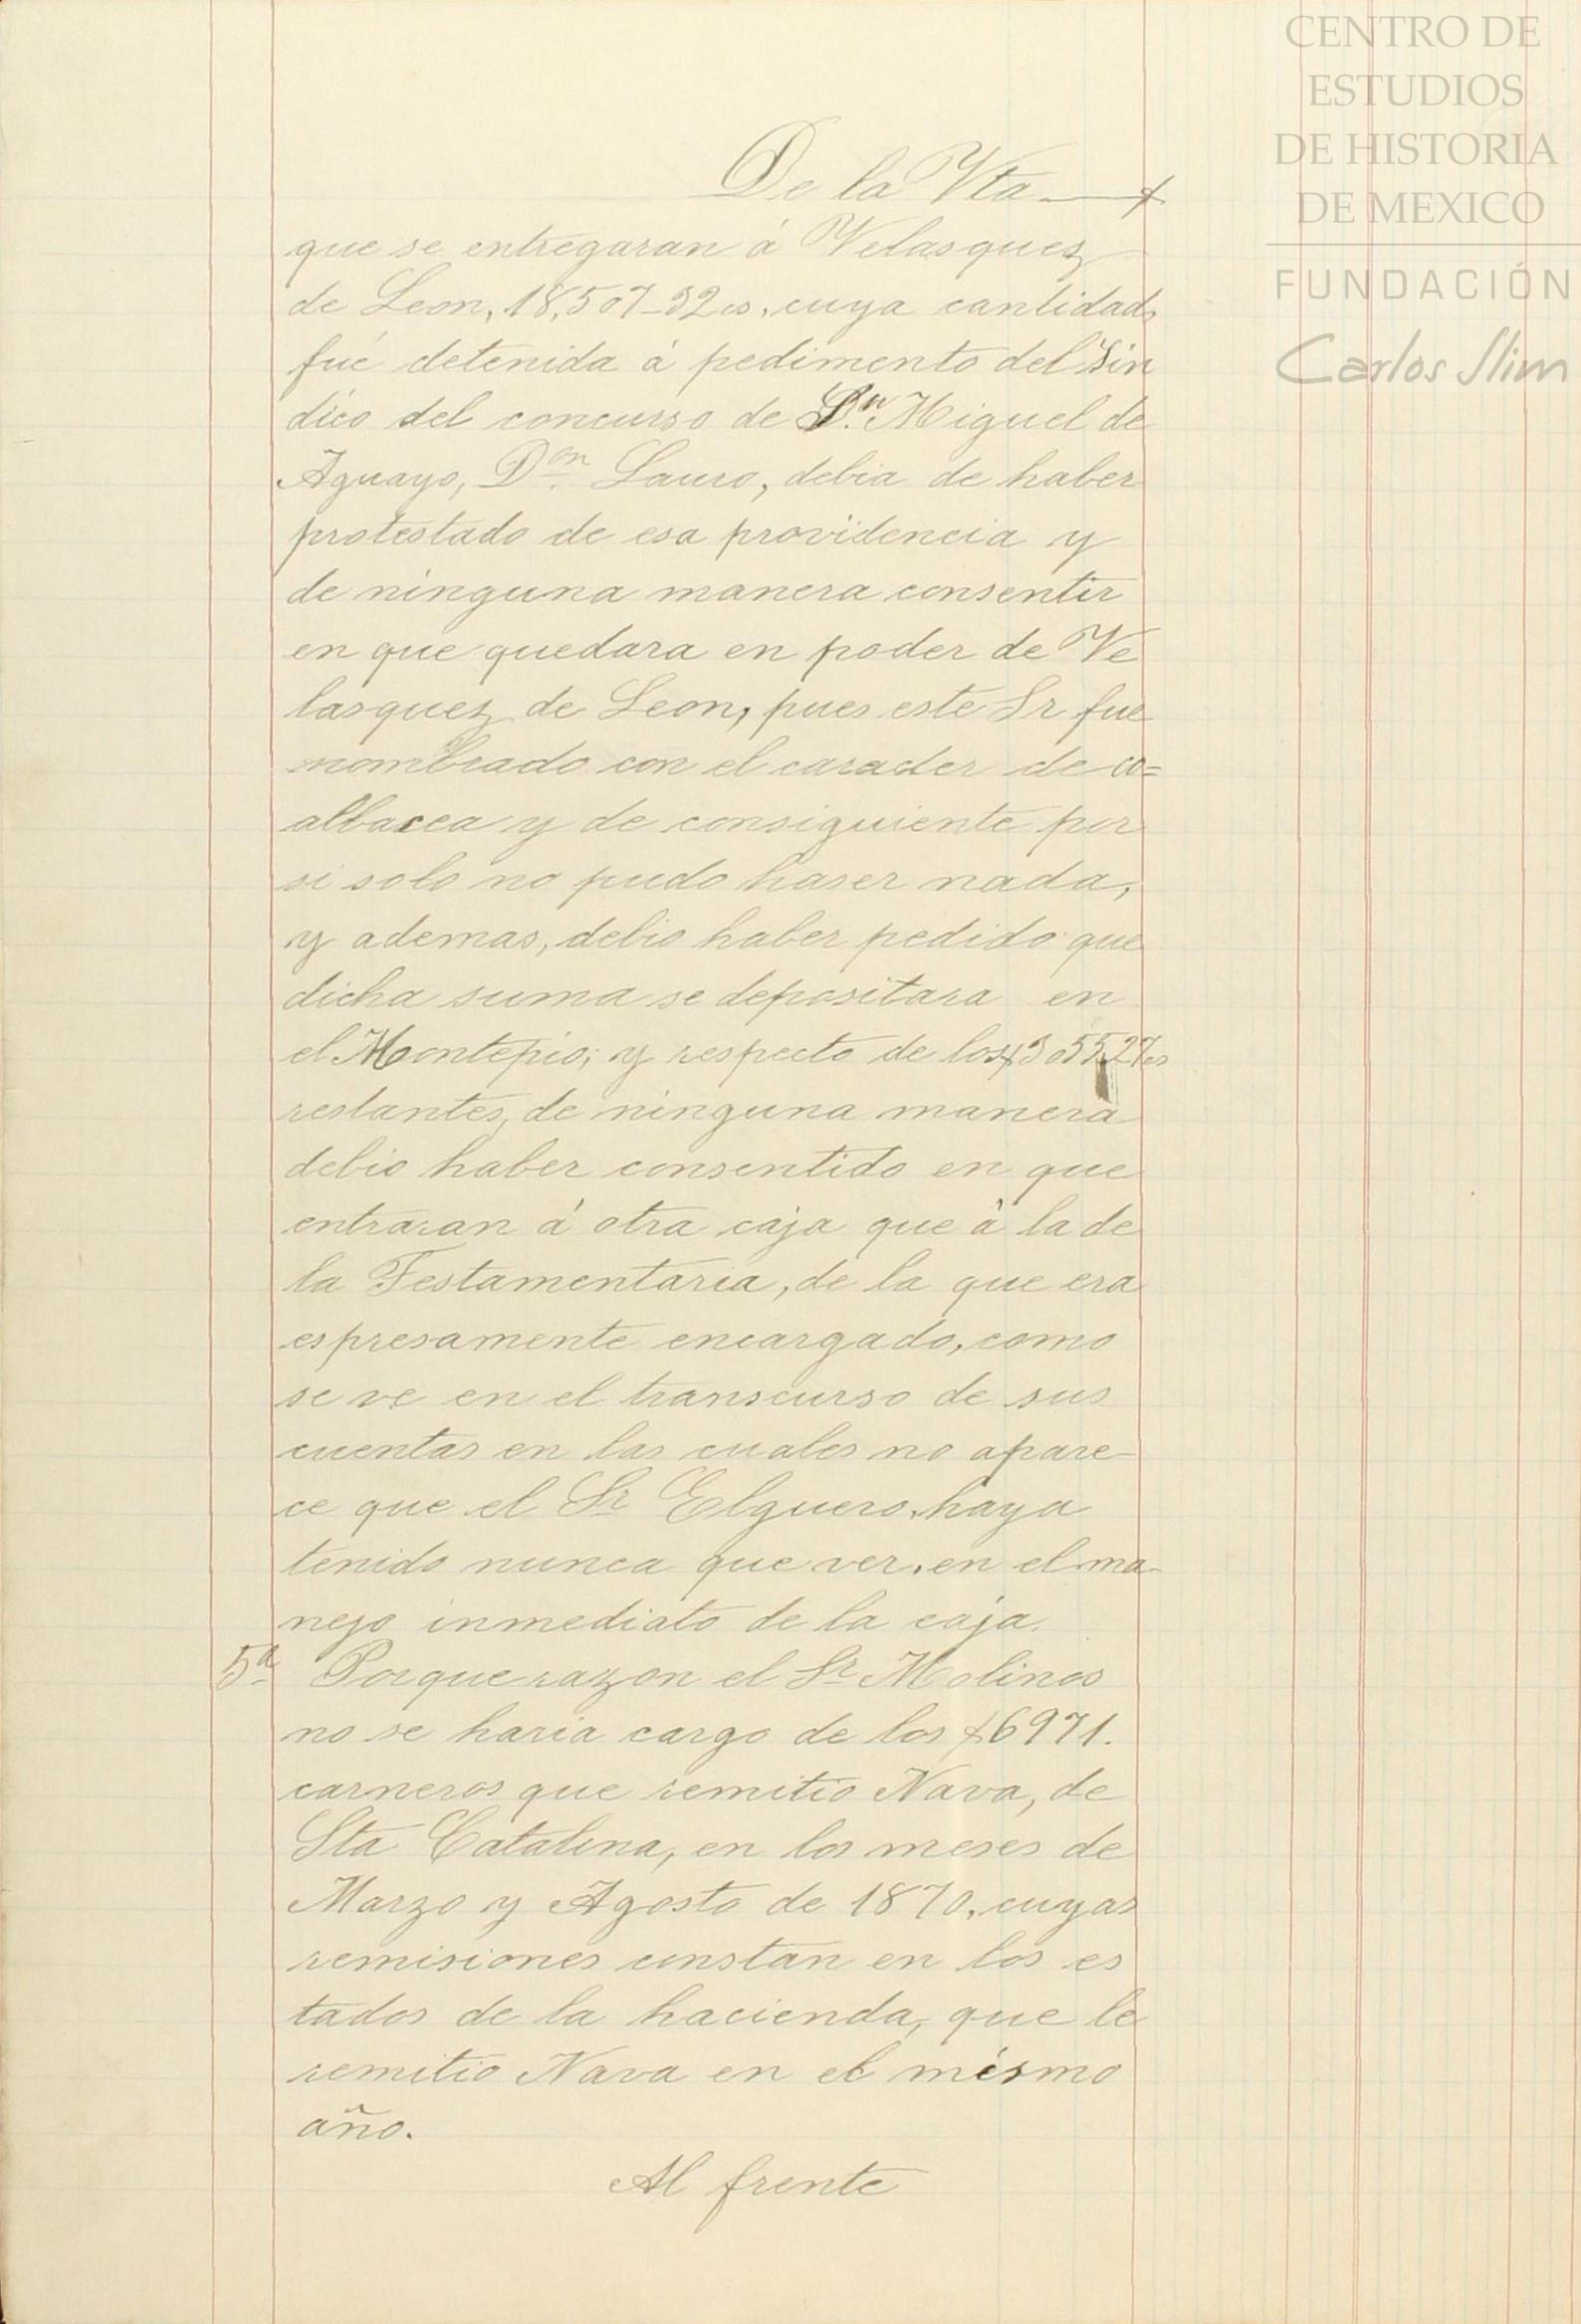 De la Vta
que se entregaran á Velasquez
de Leon, 18,507-32 cs, cuya cantidad
fué detenida á pedimento del Sin
dico del concurso de Dn. Miguel de
Aguayo, Don. Lauro, debia de haber
protestado de esa providencia y
de ninguna manera consentir
en que quedara en poder de Ve
lasquez de Leon, pues este Sr fue
nombrado con el caracter de co=
albacea y de consiguiente por
si solo no pudo haser nada,
y ademas, debio haber pedido que
dicha suma se depositara en
el Montepio; y respecto de los
restantes, de ninguna manera
debio haber consentido en que
entraran á otra caja que á la de
la Testamentaria, de la que era
espresamente encargado, como
se ve en el transcurso de sus
cuentas en las cuales no apare-
ce que el Sr Elguero, haya
tenido nunca que ver, en el ma-
nejo inmediato de la caja.
5a Porque razon el Sr Molinos
no se haria cargo de los 6971.
carneros que remitio Nava, de
Sta Catalina, en los meses de
Marzo y Agosto de 1870, cuyas
remisiones constan en los es
tados de la hacienda, que le
remitio Nava en el mismo
año.
Al frente
CENTRO DE
ESTUDIOS
DE HISTORIA
DE MEXICO
FUNDACIÓN
Carlos Slim